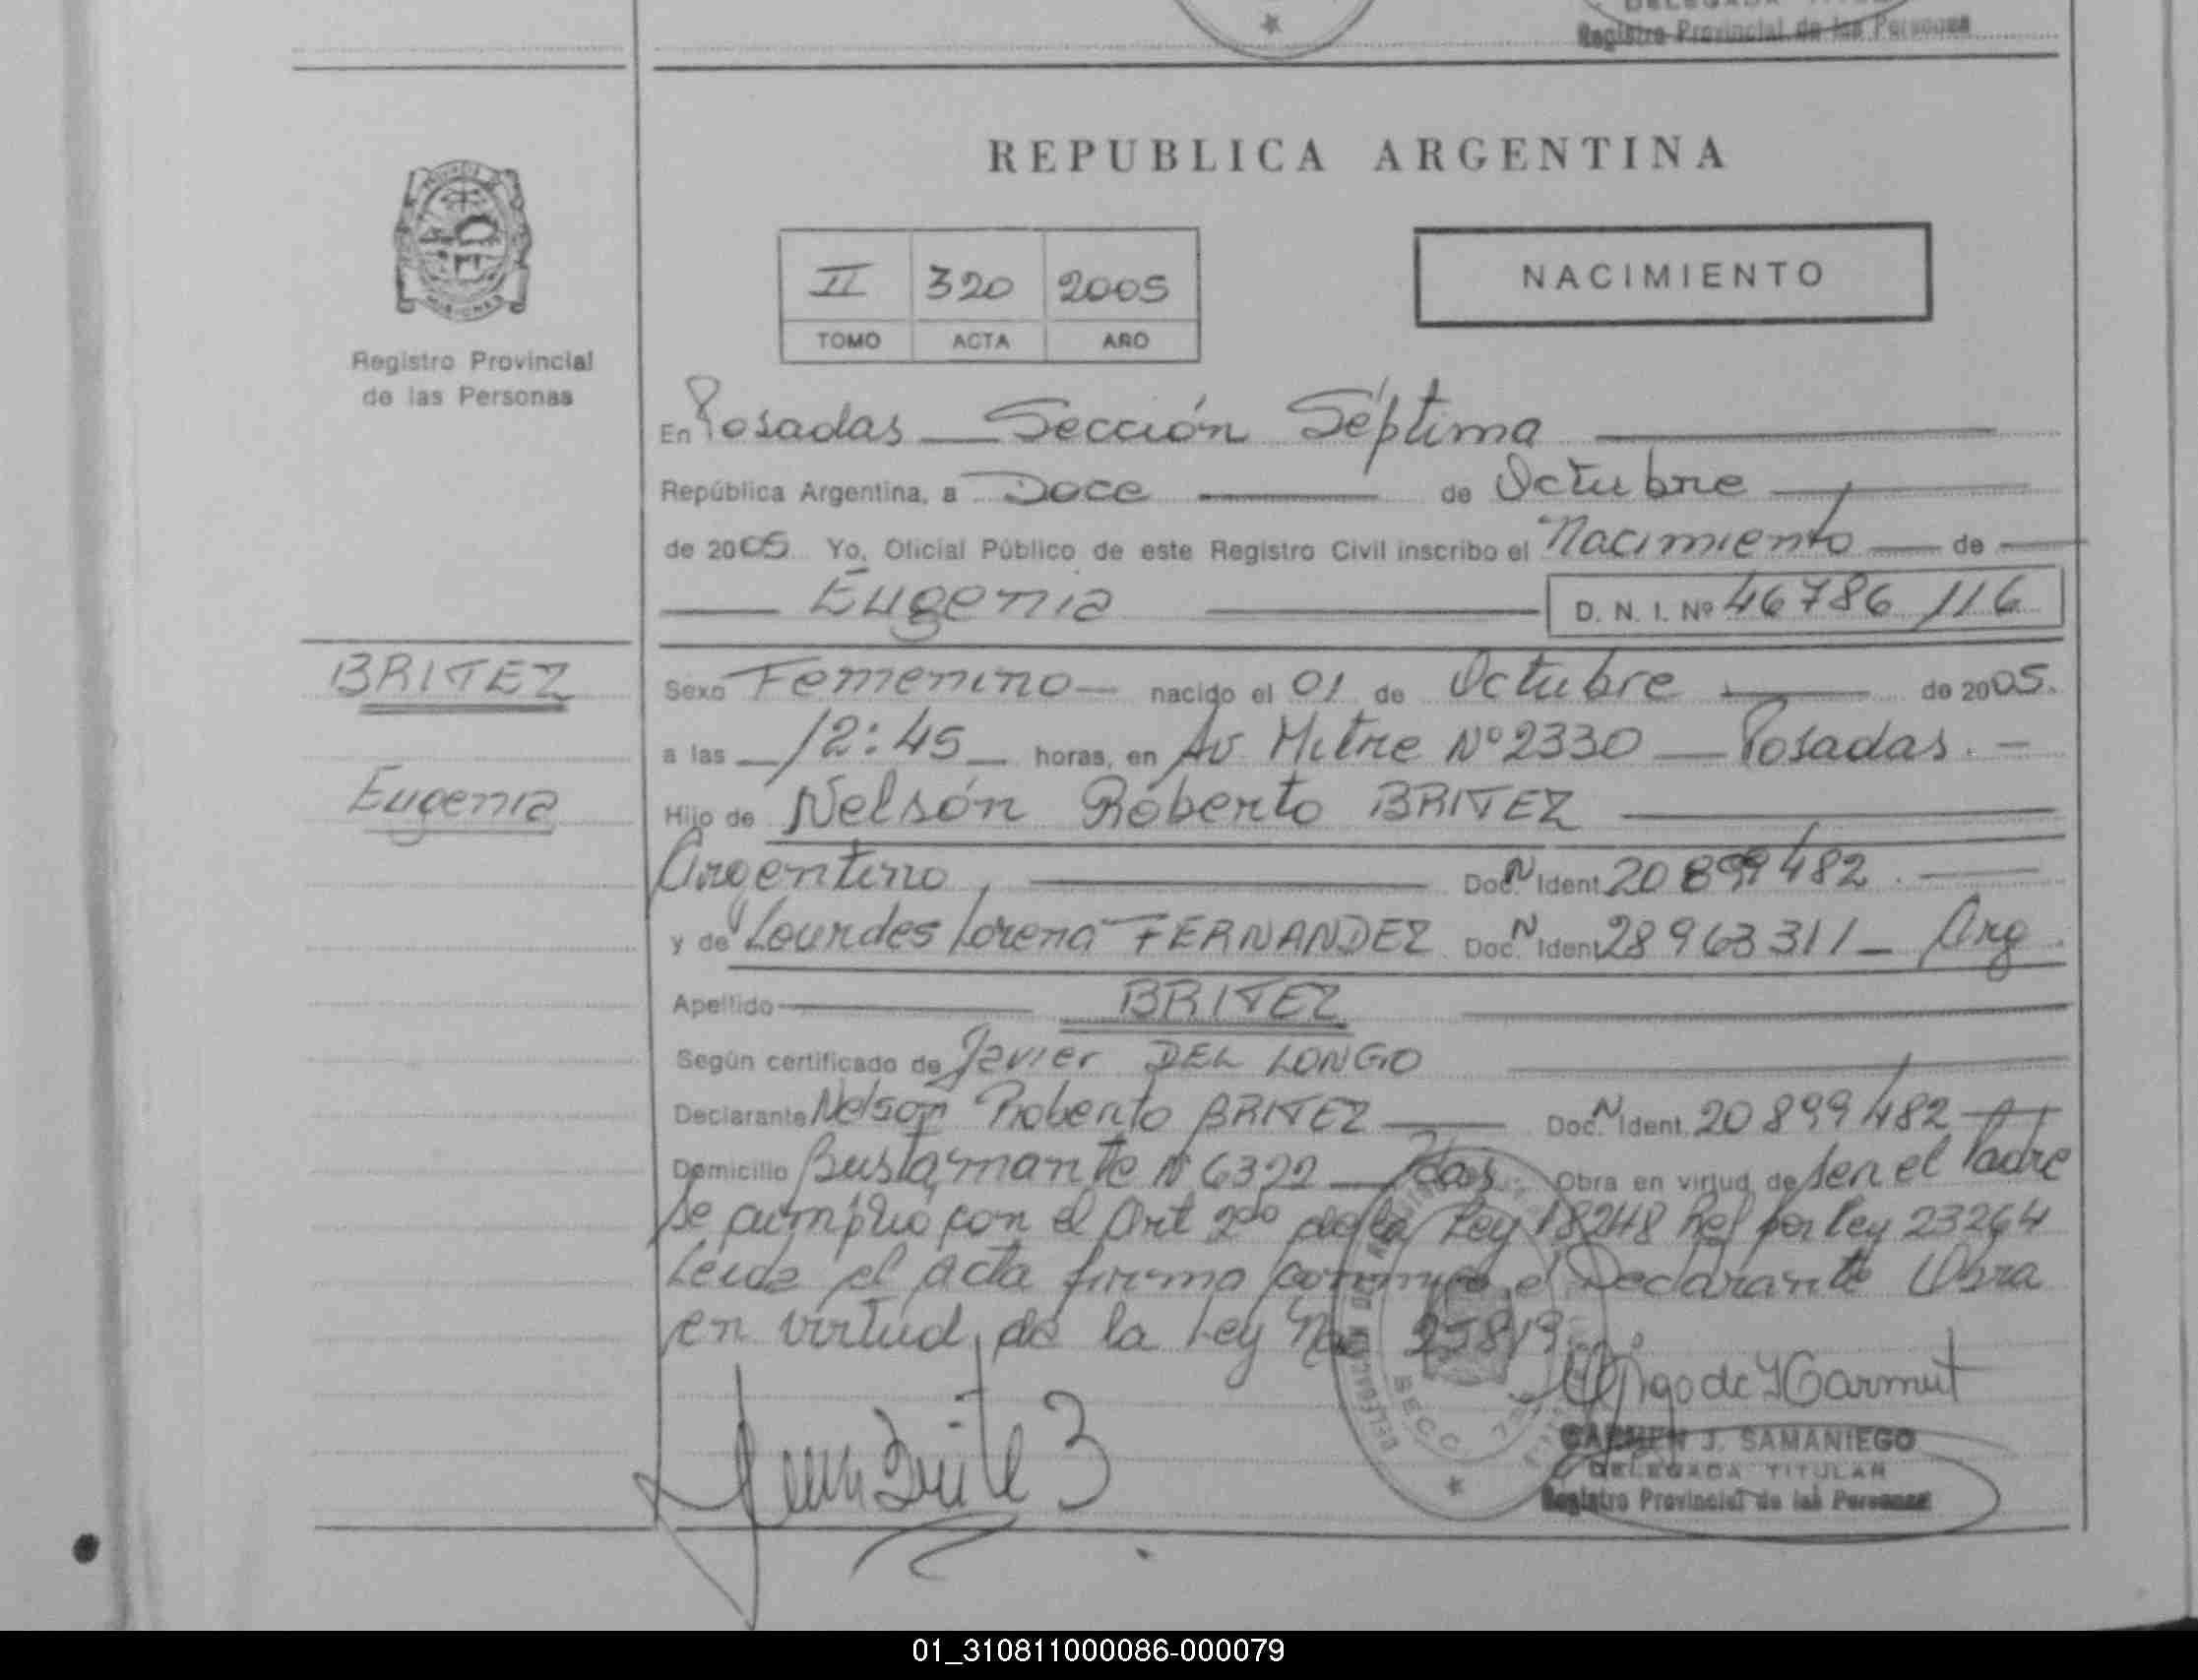 Registro Provincial de las Personas
REPUBLICA ARGENTINA
II 320 2005
TOMO ACTA AÑO
NACIMIENTO
Registro Provincial
de las Personas
En Posadas Sección Séptima
República Argentina, a Doce de Octubre
de 2005 Yo, Oficial Público de este Registro Civil inscribo el Nacimiento de
Eugenia D. N. I. Nº 46786 116
BRITEZ
Eugenia
Sexo Femenino nacido el 01 de Octubre de 2005.
a las 12:45 horas, en Av Mitre Nº 2330 Posadas.
Hijo de Nelsón Roberto BRITEZ
Argentino, Doc. N Ident 20 899 482.
y de Lourdes Lorena FERNANDEZ Doc. N Ident 28 963 311 Arg.
Apellido BRITEZ
Según certificado de Javier DEL LONGO
Declarante Nelson Roberto BRITEZ Doc. N Ident. 20 899 482
Domicilio Bustamante Nº 6322 Pdas Obra en virtud de ser el Padre
Se cumplió con el Art 2do de la Ley 18248 Ref por Ley 23264
Leida el acta firma conmigo el Declarante Obra
en virtud de la Ley Nac 25819
SECC. 7
CARMEN J. SAMANIEGO
DELEGADA TITULAR
Registro Provincial de las Personas
01_310811000086-000079